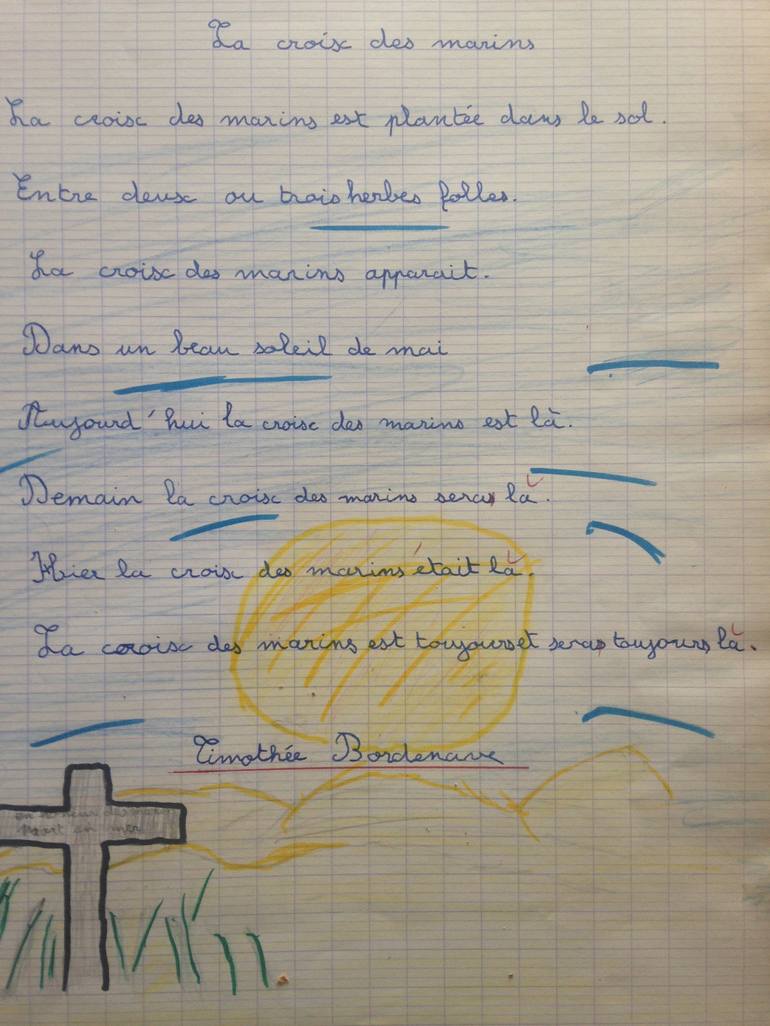 La croix des marins
La croix des marins est plantée dans le sol.
Entre deux ou trois herbes folles.
La croix des marins apparait.
Dans un beau soleil de mai
Aujourd'hui la croix des marins est là.
Demain la croix des marins sera là.
Hier la croix des marins était là.
La croix des marins est toujours et sera toujours là.
Timothée Bordenave
en des
mort en mer